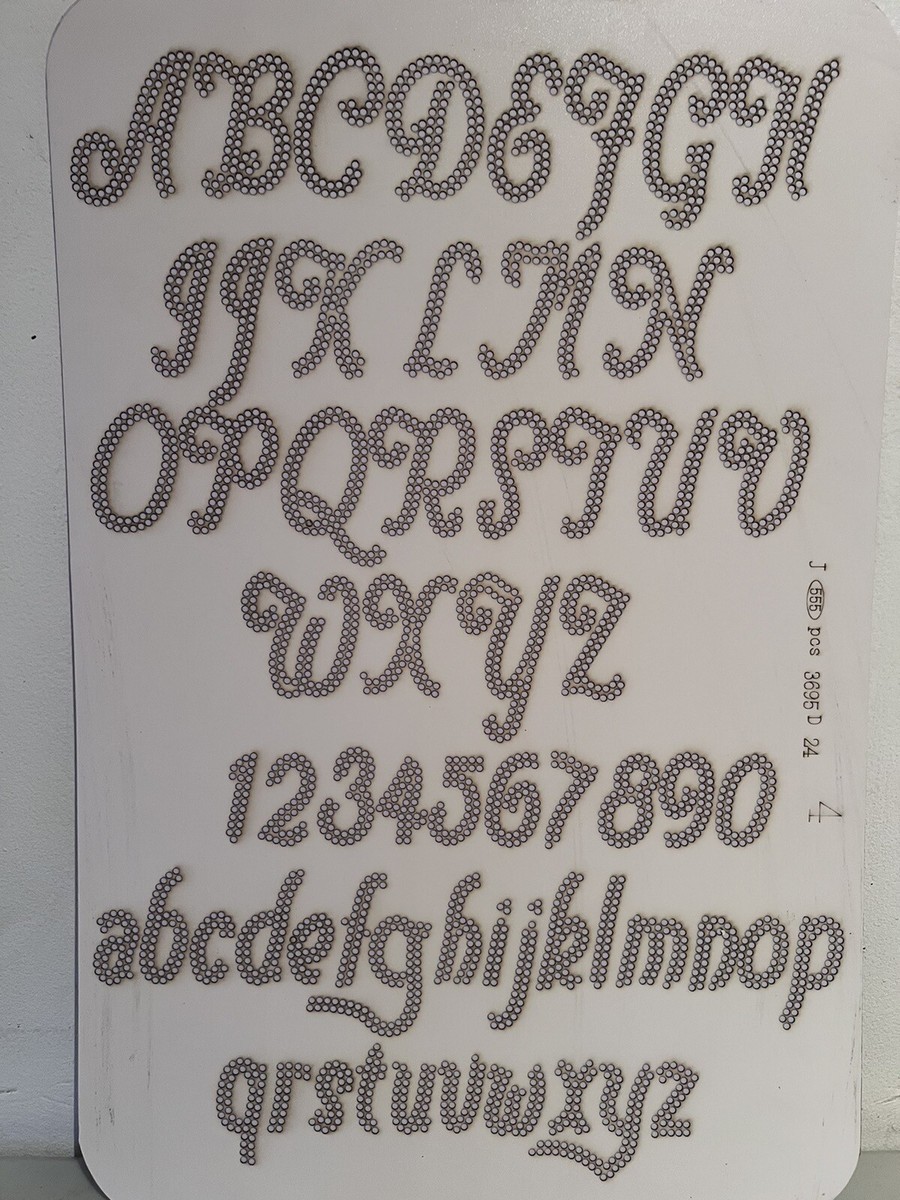 ABCDEFGH
IJK LMN
OPQRSTUV
WXYZ
1234567890
abcdefghijklmnop
qrstuvwxyz
J 555 pcs 3695 D 24 4